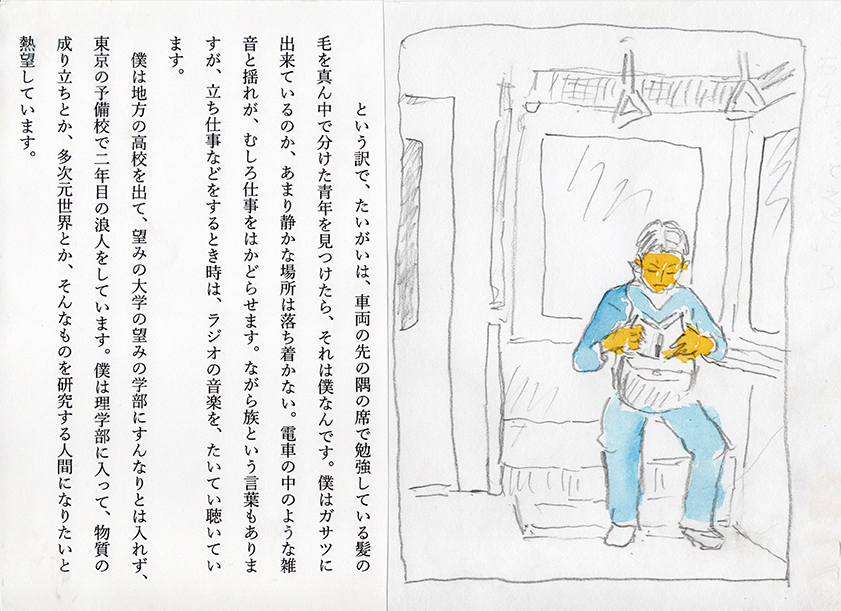 という訳で、たいがいは、車両の先の隅の席で勉強している髪の
毛を真ん中で分けた青年を見つけたら、それは僕なんです。僕はガサツに
出来ているのか、あまり静かな場所は落ち着かない。電車の中のような雑
音と揺れが、むしろ仕事をはかどらせます。ながら族という言葉もありま
すが、立ち仕事などをするとき時は、ラジオの音楽を、たいてい聴いてい
ます。
僕は地方の高校を出て、望みの大学の望みの学部にすんなりとは入れず、
東京の予備校で二年目の浪人をしています。僕は理学部に入って、物質の
成り立ちとか、多次元世界とか、そんなものを研究する人間になりたいと
熱望しています。